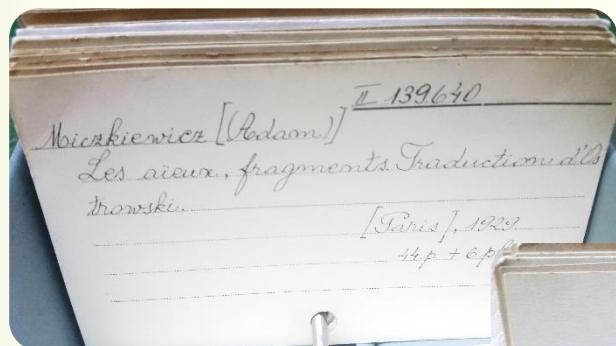 II 139.640
Miczkiewicz [(Adam)]
Les aïeux, fragments. Traduction d'Os
trowski.
[Paris], 1929
44 p + 6 pl